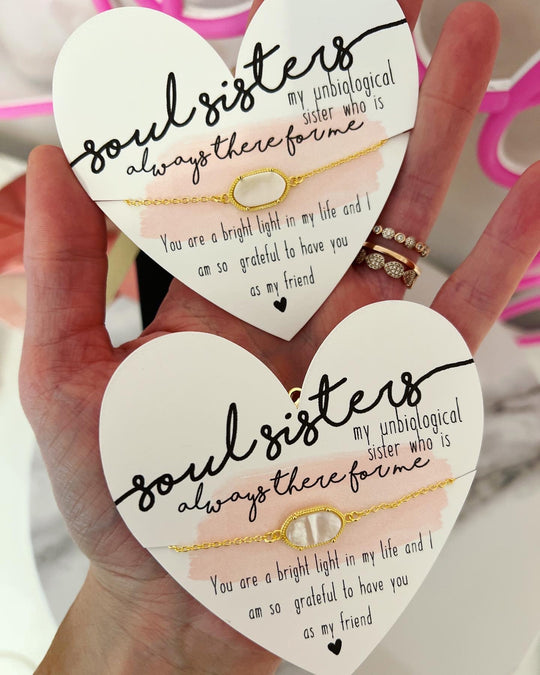 soul sisters
my unbiological
sister who is
always there for me
You are a bright light in my life and I
am so grateful to have you
as my friend
soul sisters
my unbiological
sister who is
always there for me
You are a bright light in my life and I
am so grateful to have you
as my friend